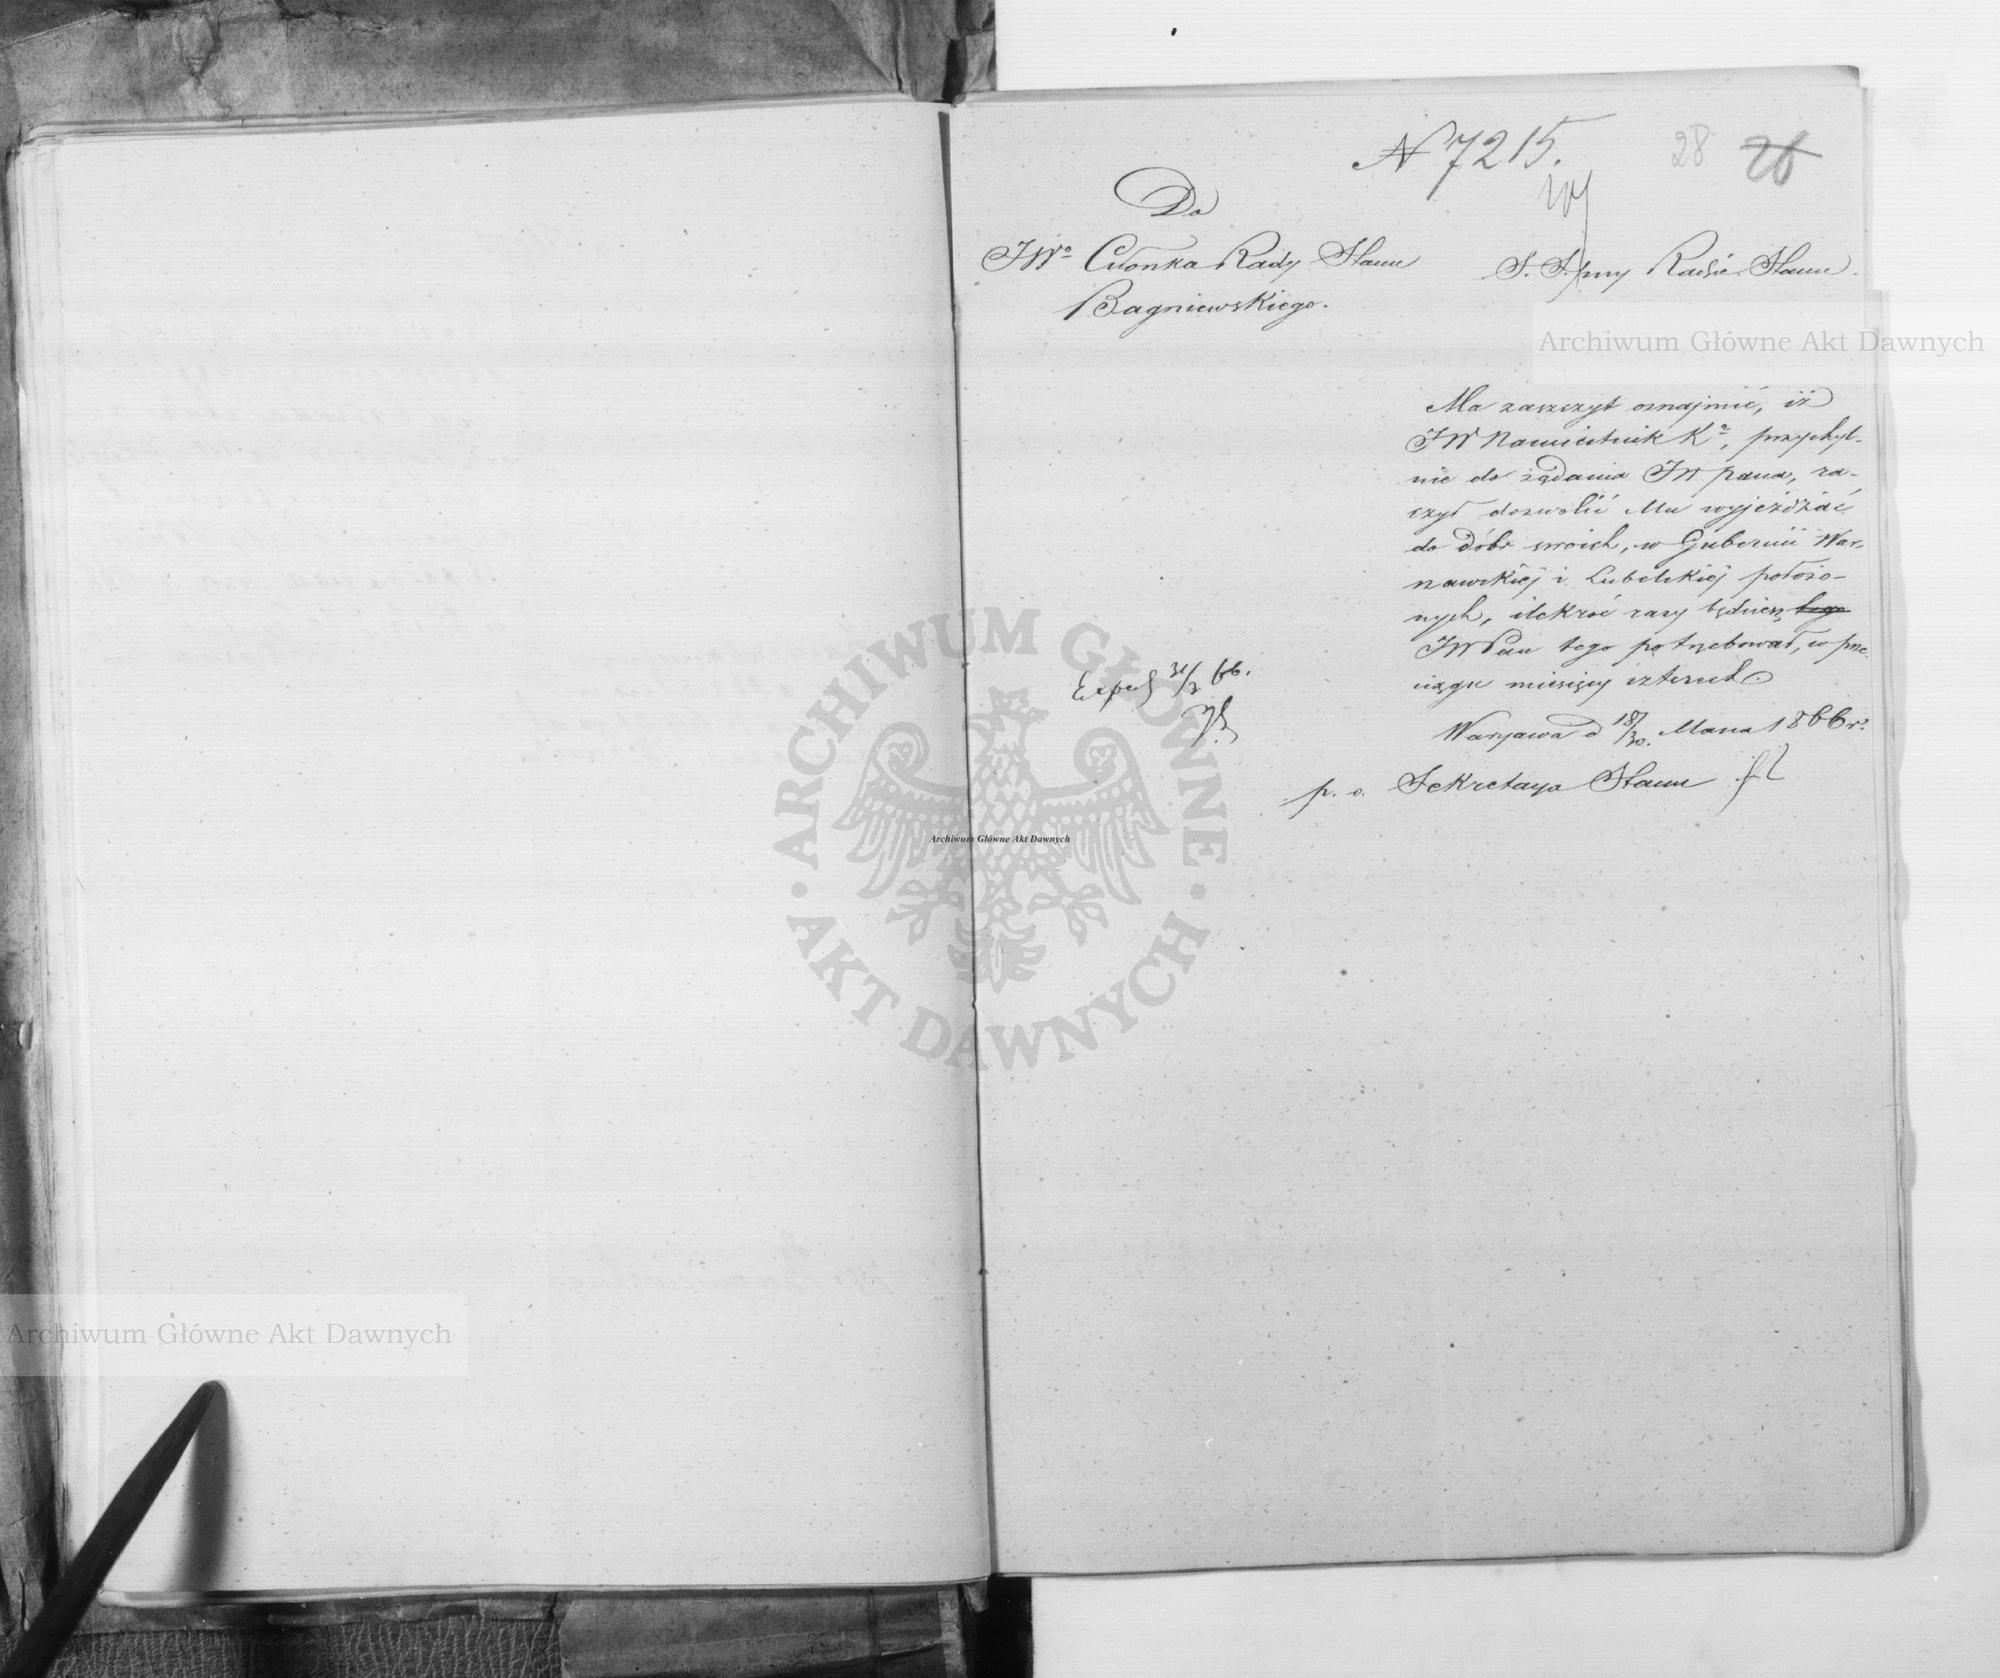 N 7215.
28 26
Do
JWo Członka Rady Stanu
Bagniewskiego.
S. S. przy Radzie Stanu.
Ma zaszczyt oznajmić, iż
JW Namiestnik Ko, przychyl-
nie do żądania JW pana, ra-
czył dozwolić Mu wyjeżdżać
do dóbr swoich, w Gubernii War-
szawskiej i Lubelskiej położo-
nych, ilekroć razy będziesz tego
JW Pan tego potrzebował, w prze-
ciągu miesięcy czterech
Warszawa d 18/30. Marca 1866 r.
p. o. Sekretarza Stanu
Exped 31/3 66.
Archiwum Główne Akt Dawnych
ARCHIWUM GŁÓWNE AKT DAWNYCH
Archiwum Główne Akt Dawnych
Archiwum Główne Akt Dawnych